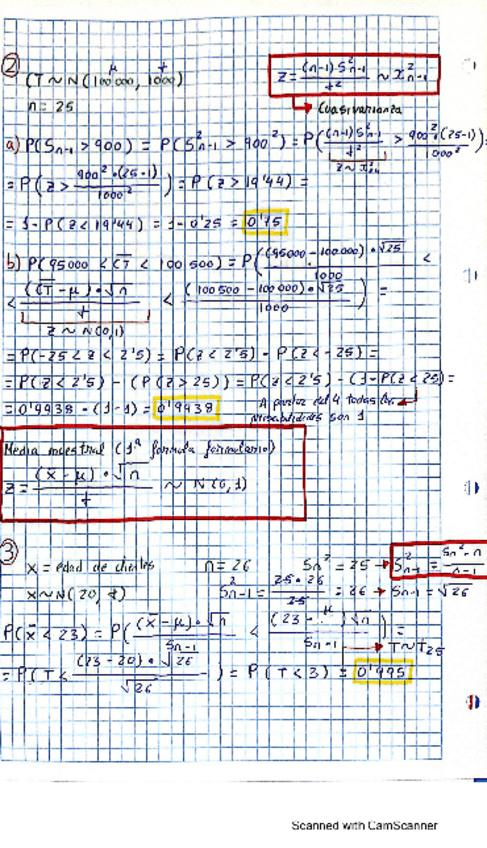 ②
CT ~ N(100'000, 1000)
μ σ
n = 25
Z = (n-1) S²n-1 / σ² ~ χ²n-1
→ Cuasivarianza
a) P(Sn-1 > 900) = P(S²n-1 > 900²) = P((n-1) S²n-1 / σ² > 900²·(25-1) / 1000²) =
Z ~ χ²24
= P(Z > 900²·(25-1) / 1000²) = P(Z > 19'44) =
= 1 - P(Z < 19'44) = 1 - 0'25 = 0'75
b) P(95000 < CT < 100500) = P((95000 - 100.000)·√25 / 1000 <
< (CT - μ)·√n / σ < (100500 - 100000)·√25 / 1000) =
Z ~ N(0,1)
= P(-25 < Z < 2'5) = P(Z < 2'5) - P(Z < -25) =
= P(Z < 2'5) - (P(Z > 25)) = P(Z < 2'5) - (1 - P(Z < 25) =
= 0'9938 - (1-1) = 0'9938
A partir del 4 todas las
probabilidades son 1
Media muestral (1ª formula formulario)
Z = (x̄ - μ)·√n / σ ~ N(0,1)
③
X = edad de clientes n = 26 Sn² = 25 → S²n-1 = Sn²·n / n-1
X ~ N(20, σ) S²n-1 = 25·26 / 25 = 26 → Sn-1 = √26
P(x̄ < 23) = P((x̄ - μ)·√n / Sn-1 < (23 - μ)√n / Sn-1) =
→ T ~ T25
= P(T < (23 - 20)·√26 / √26) = P(T < 3) = 0'995
Scanned with CamScanner